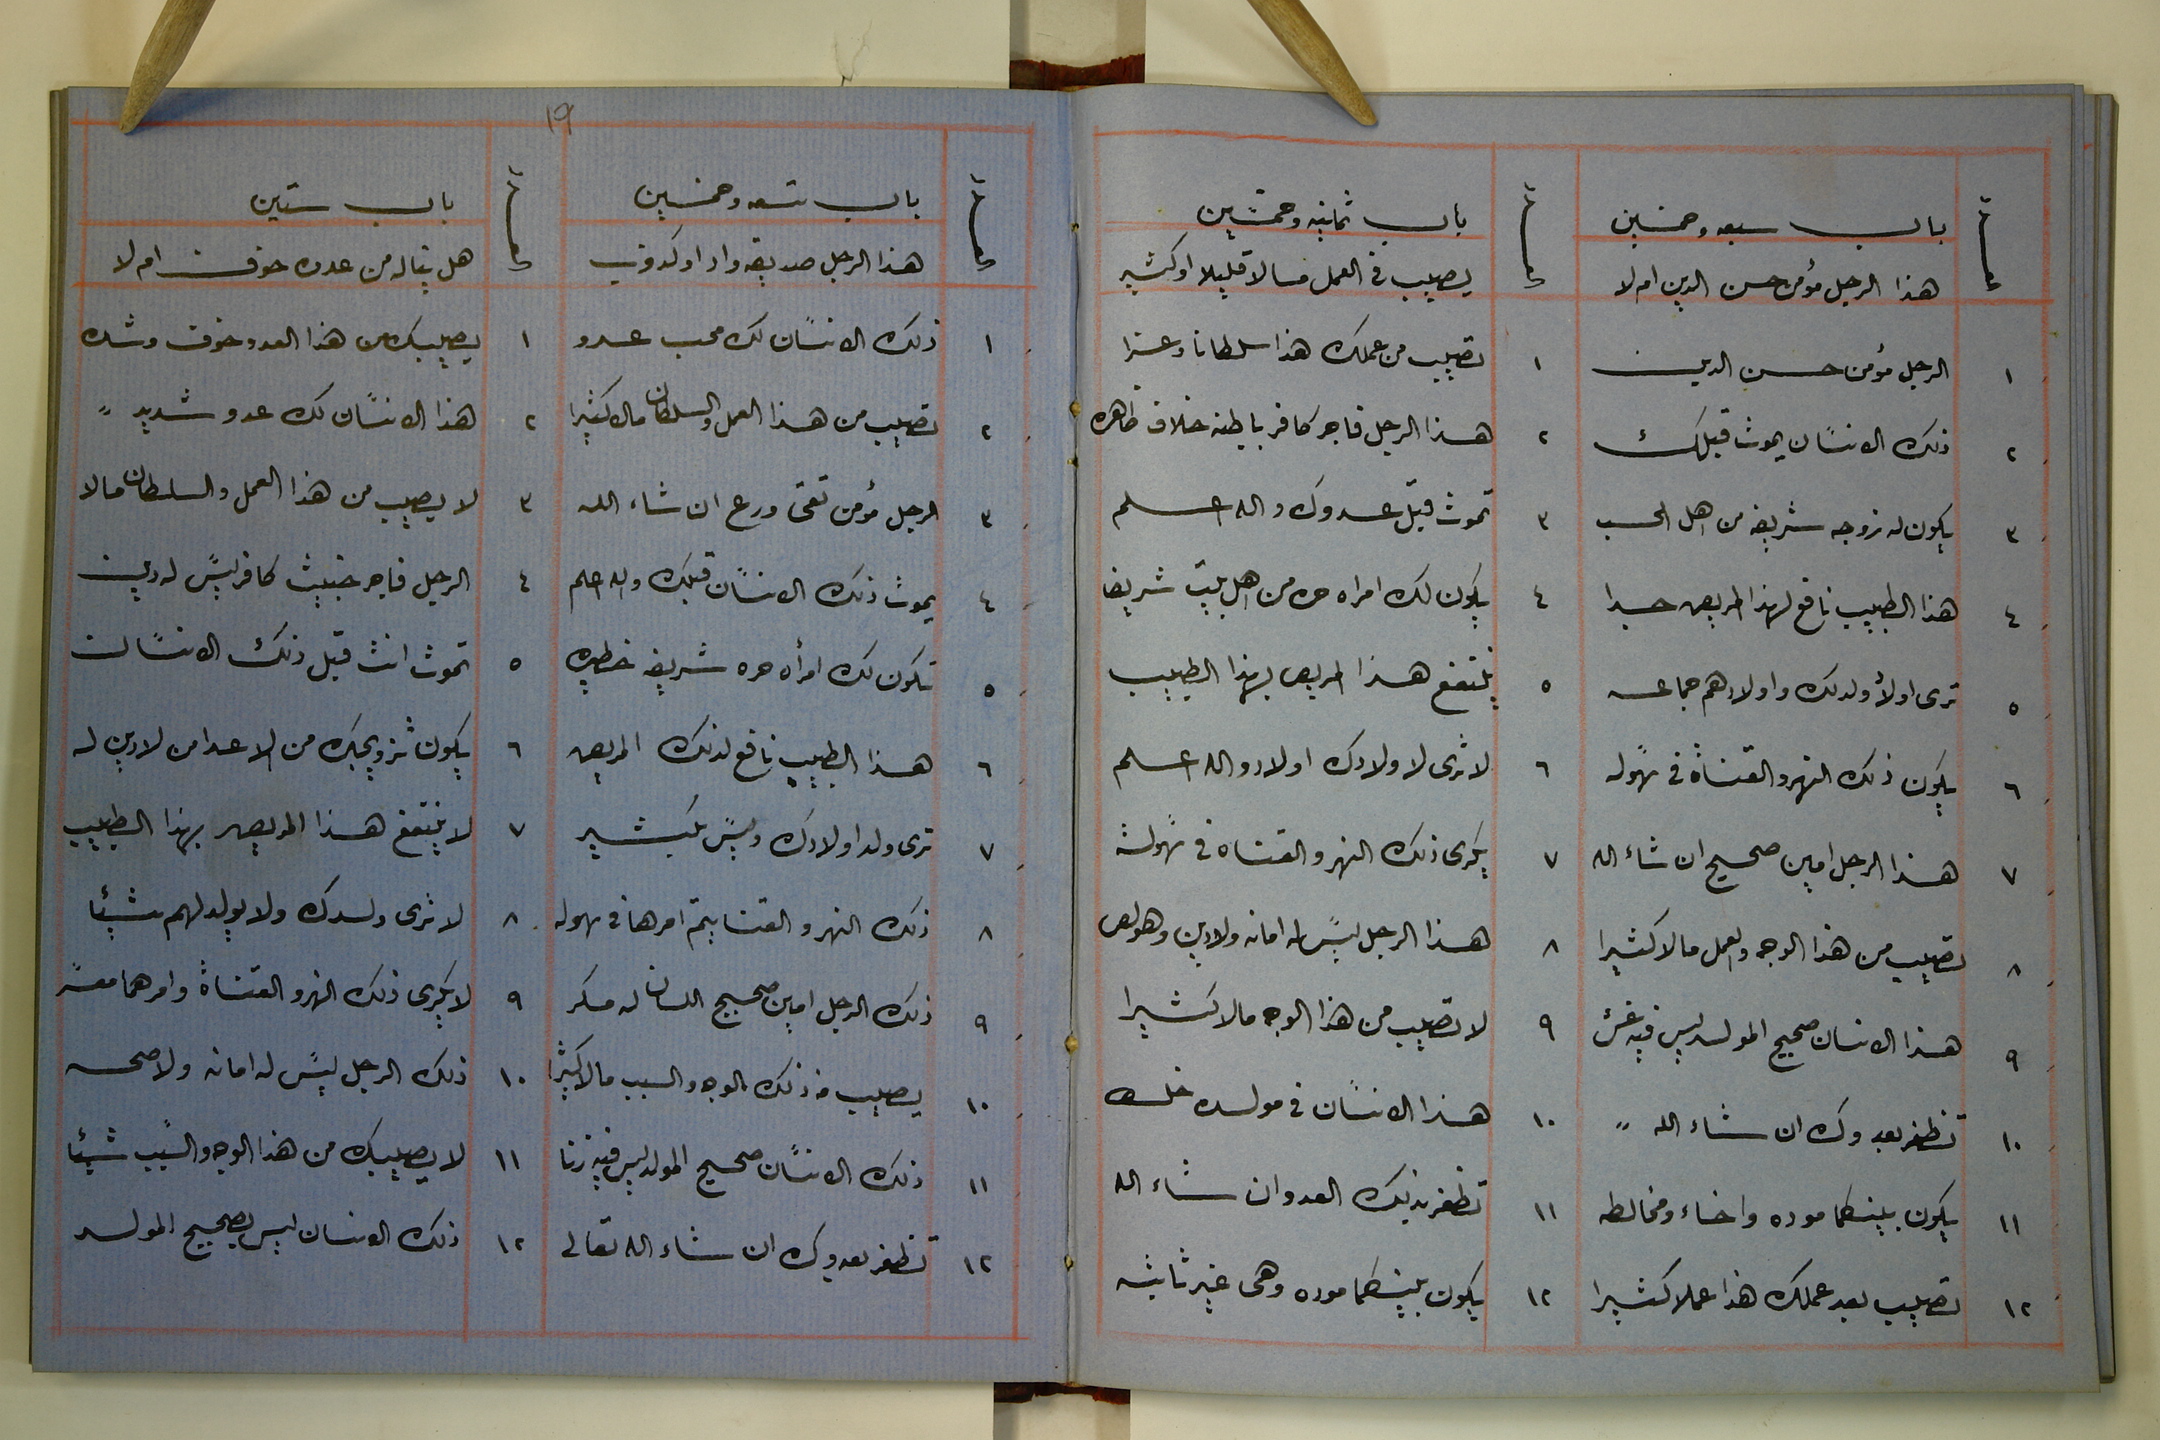 باب سبعه وخمسين
هذا الرجل مؤمن حسن الدين ام لا
١ الرجل مؤمن حسن الدين
٢ ذلك الانسان يموت قبلك
٣ يكون له زوجه شريفه من اهل الحسب
٤ هذا الطبيب نافع لهذا المريض جدا
٥ ترى اولاد ولدك واولادهم جماعه
٦ يكون ذلك النهر والقناة في سهوله
٧ هذا الرجل امين صحيح ان شاء الله
٨ تصيب من هذا الوجه والعمل مالا كثيرا
٩ هذا الانسان صحيح المولد ليس فيه
١٠ تظفر بعدوك ان شاء الله
١١ يكون بينكما موده واخاء ومخالطه
١٢ تصيب بعد عملك هذا عملا كثيرا
باب ثمانيه وخمسين
يصيب في العمل مالا قليلا او كثير
١ تصيب من عملك هذا سلطانا وعزا
٢ هذا الرجل فاجر كافر باطنه خلاف ظاهره
٣ تموت قبل عدوك والله اعلم
٤ يكون لك امراه حره من اهل بيت شريفا
٥ ينتفع هذا المريض بهذا الطبيب
٦ لا ترى لاولادك اولاد والله اعلم
٧ يكرى ذلك النهر والقناه في سهولة
٨ هذا الرجل ليس له امانه ولا دين وهو لص
٩ لا تصيب من هذا الوجه مالا كثيرا
١٠ هذا الانسان في مولده
١١ تظفر بذلك العدو ان شاء الله
١٢ يكون بينكما موده وهى غير ثابته
١٩
باب تسعه وخمسين
هذا الرجل صديقه واد او كذوب
١ ذلك الانسان لك محب عدو
٢ تصيب من هذا العمل والسلطان مالا كثيرا
٣ الرجل مؤمن تقى ورع ان شاء الله
٤ يموت ذلك الانسان قبلك والله اعلم
٥ تكون لك امرأه حره شريفه خطيره
٦ هذا الطبيب نافع لذلك المريض
٧ ترى ولد اولادك وليس بكثير
٨ ذلك النهر والقنا يتم امرها في سهوله
٩ ذلك الرجل امين صحيح اللسان له مكر
١٠ يصيب من ذلك الوجه والسبب مالا كثيرا
١١ ذلك الانسان صحيح المولد ليس فيه زنا
١٢ تظفر بعدوك ان شاء الله تعالى
باب ستين
هل يناله من عدوه خوف ام لا
١ يصيبك من هذا العدو خوف وشده
٢ هذا الانسان لك عدو شديد
٣ لا يصيب من هذا العمل والسلطان مالا
٤ الرجل فاجر خبيث كافر ليس له دين
٥ تموت انت قبل ذلك الانسان
٦ يكون تزويجك من الاعدا من لا دين له
٧ لا ينتفع هذا المريض بهذا الطبيب
٨ لا ترى ولدك ولا يولد لهم شيئا
٩ لا يكرى ذلك النهر والقناة وامرهما معسر
١٠ ذلك الرجل ليس له امانه ولا صحه
١١ لا يصيبك من هذا الوجه والسبب شيئا
١٢ ذلك الانسان ليس بصحيح المولد